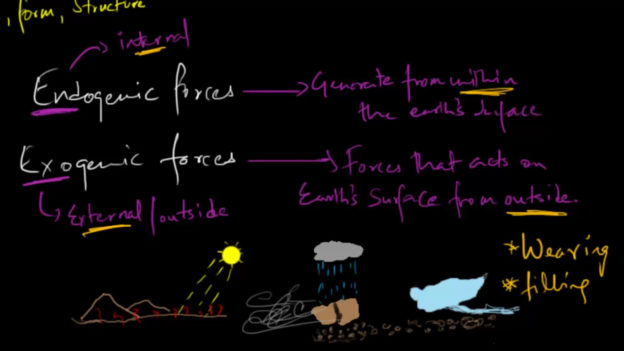 , form, Structure
internal
Endogenic forces
Generate from within
the earth's surface
Exogenic forces
Forces that acts on
Earth's Surface from outside.
External/outside
* Wearing
* filling